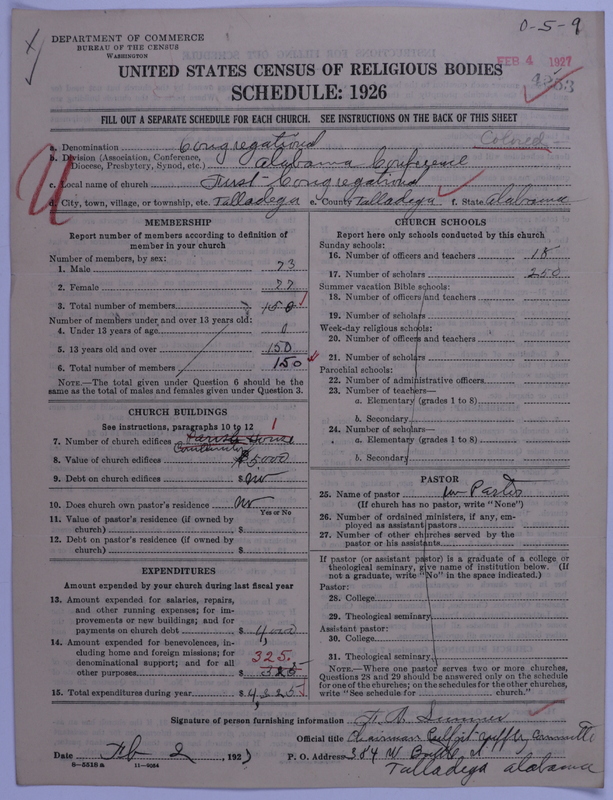 DEPARTMENT OF COMMERCE
BUREAU OF THE CENSUS
WASHINGTON
0-5-9
FEB 4 1927
UNITED STATES CENSUS OF RELIGIOUS BODIES
SCHEDULE: 1926
FILL OUT A SEPARATE SCHEDULE FOR EACH CHURCH. SEE INSTRUCTIONS ON THE BACK OF THIS SHEET
a. Denomination Congregational Colored
b. Division (Association, Conference, Diocese, Presbytery, Synod, etc.) Alabama Conference
c. Local name of church First Congregational
d. City, town, village, or township, etc. Talladega e. County Talladega f. State Alabama
MEMBERSHIP
Report number of members according to definition of
member in your church
Number of members, by sex:
1. Male 73
2. Female 77
3. Total number of members 150
Number of members under and over 13 years old:
4. Under 13 years of age 0
5. 13 years old and over 150
6. Total number of members 150
NOTE.—The total given under Question 6 should be
same as the total of males and females given under Question 3.
CHURCH BUILDINGS
See instructions, paragraphs 10 to 12
7. Number of church edifices 1
8. Value of church edifices $5000
9. Debt on church edifices $ no
10. Does church own pastor's residence no
Yes or No
11. Value of pastor's residence (if owned by
church) $
12. Debt on pastor's residence (if owned by
church) $
EXPENDITURES
Amount expended by your church during last fiscal year
13. Amount expended for salaries, repairs,
and other running expenses; for im-
provements or new buildings; and for
payments on church debt $ 4000
14. Amount expended for benevolences, in-
cluding home and foreign missions; for
denominational support; and for all
other purposes 325. $ 325
15. Total expenditures during year $ 4,325
CHURCH SCHOOLS
Report here only schools conducted by this church
Sunday schools:
16. Number of officers and teachers 18
17. Number of scholars 250
Summer vacation Bible schools:
18. Number of officers and teachers
19. Number of scholars
Week-day religious schools:
20. Number of officers and teachers
21. Number of scholars
Parochial schools:
22. Number of administrative officers
23. Number of teachers—
a. Elementary (grades 1 to 8)
b. Secondary
24. Number of scholars—
a. Elementary (grades 1 to 8)
b. Secondary
PASTOR
25. Name of pastor no Pastor
(If church has no pastor, write "None")
26. Number of ordained ministers, if any, em-
ployed as assistant pastors
27. Number of other churches served by the
pastor or his assistants
If pastor (or assistant pastor) is a graduate of a college or
theological seminary, give name of institution below. (If
not a graduate, write "No" in the space indicated.)
Pastor:
28. College
29. Theological seminary
Assistant pastor:
30. College
31. Theological seminary
NOTE.—Where one pastor serves two or more churches,
Questions 28 and 29 should be answered only on the schedule
for one of the churches; on the schedules for the other churches,
write "See schedule for church."
Signature of person furnishing information Sumner
Official title Chairman Pulpit Supply Committee
Date Feb 2, 1927 P. O. Address 384 W. St
Talladega Alabama
8-5518a 11-9084